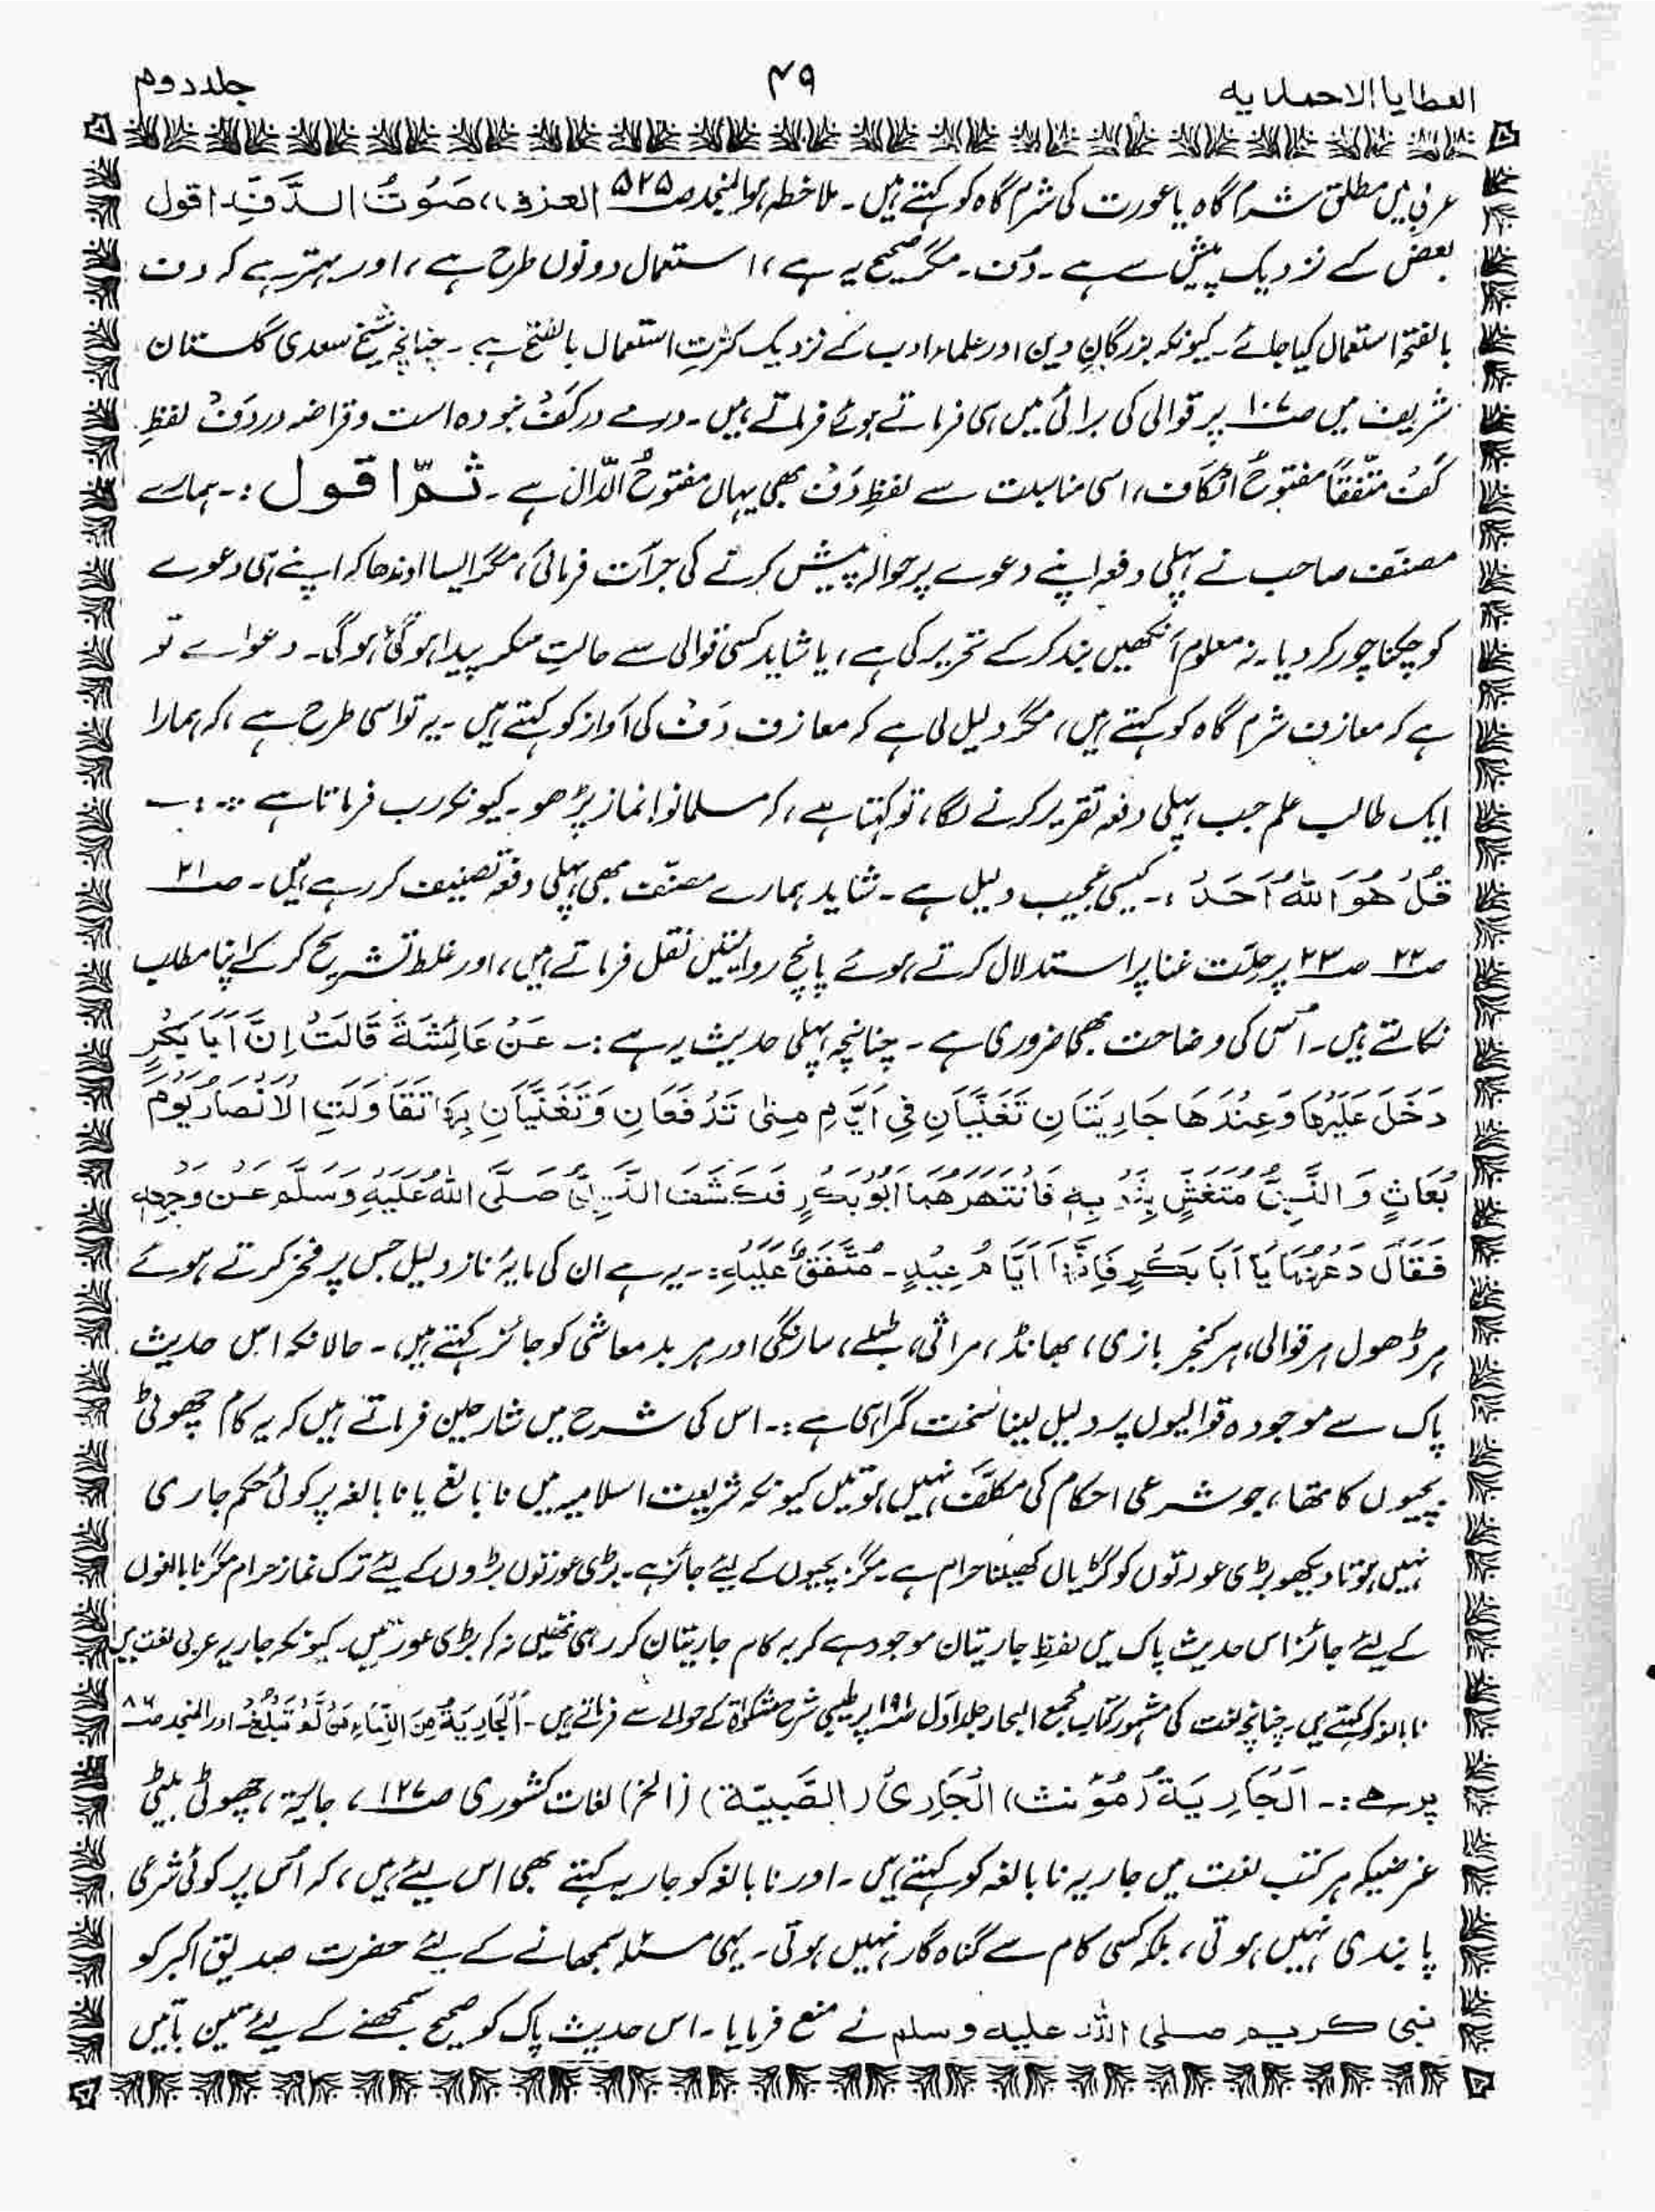 العطایا الاحمدیہ
۴۹
جلد دوم
عربی میں مطلق شرم گاہ یا عورت کی شرم گاہ کو کہتے ہیں۔ ملاحظہ ہو المنجد صـ۵۲۵ العزف، صَوْتُ الدَّفِّ اقول
بعض کے نزدیک پیش سے ہے۔ دُف۔ مگر صحیح یہ ہے، استعمال دونوں طرح ہے، اور بہتر ہے کہ دف
بالفتح استعمال کیا جائے۔ کیونکہ بزرگانِ دین اور علماء ادب کے نزدیک کثرتِ استعمال بالفتح ہے۔ چنانچہ شیخ سعدی گلستان
شریف میں صـ۱۰۷ پر قوالی کی برائی میں ہی فرماتے ہوئے فرماتے ہیں۔ درمے در کَفْ نبودہ است و قراضہ در دَفْ لفظِ
کَفْ متّفقاً مفتوحُ الکاف، اسی مناسبت سے لفظِ دَفْ بھی یہاں مفتوحُ الدّال ہے۔ ثمّ اقول :۔ ہمارے
مصنّف صاحب نے پہلی دفعہ اپنے دعوے پر حوالہ پیش کرنے کی جرآت فرمائی، مگر ایسا اوندھا کہ اپنے ہی دعوے
کو چکنا چور کر دیا۔ نہ معلوم آنکھیں بند کر کے تحریر کی ہے، یا شاید کسی قوالی سے حالتِ سکر پیدا ہو گئی ہو گی۔ دعواے تو
ہے کہ معازف شرم گاہ کو کہتے ہیں، مگر دلیل لی ہے کہ معازف دَفْ کی آواز کو کہتے ہیں۔ یہ تو اسی طرح ہے، کہ ہمارا
ایک طالب علم جب پہلی دفعہ تقریر کرنے لگا، تو کہتا ہے، کہ مسلمانو! نماز پڑھو۔ کیونکہ رب فرماتا ہے :۔
قُلْ هُوَ اللهُ اَحَدٌ :۔ کیسی عجیب دلیل ہے۔ شاید ہمارے مصنّف بھی پہلی دفعہ تصنیف کر رہے ہیں۔ صـ۲۱
صـ۲۲ صـ۲۳ پر حلّت غنا پر استدلال کرتے ہوئے پانچ روائتیں نقل فرماتے ہیں، اور غلط تشریح کر کے اپنا مطلب
نکالتے ہیں۔ اُس کی وضاحت بھی ضروری ہے۔ چنانچہ پہلی حدیث یہ ہے :۔ عَنْ عَائِشَةَ قَالَتْ اِنَّ اَبَا بَکْرٍ
دَخَلَ عَلَیْهَا وَعِنْدَهَا جَارِیَتَانِ تَغَنِّیَانِ فِی اَیَّامِ مِنٰی تَدْفَعَانِ وَتَغَنِّیَانِ بِمَا تَقَاوَلَتِ الْاَنْصَارُ یَوْمَ
بُعَاثٍ وَالنَّبِیُّ مُتَغَشٍّ بِثَوْبِهٖ فَانْتَهَرَهُمَا اَبُوْبَکْرٍ فَکَشَفَ النَّبِیُّ صَلَّی اللهُ عَلَیْهِ وَسَلَّمَ عَنْ وَجْهِهٖ
فَقَالَ دَعْهُمَا یَا اَبَا بَکْرٍ فَاِنَّهَا اَیَّامُ عِیْدٍ۔ مُتَّفَقٌ عَلَیْهِ :۔ یہ ہے ان کی مایۂ ناز دلیل جس پر فخر کرتے ہوئے
ہر ڈھول ہر قوالی، ہر کنجر بازی، بھانڈ، مراثی، طبلے، سارنگی اور ہر بدمعاشی کو جائز کہتے ہیں۔ حالانکہ اس حدیث
پاک سے موجودہ قوالیوں پر دلیل لینا سخت گمراہی ہے :۔ اس کی شرح میں شارحین فرماتے ہیں کہ یہ کام چھوٹی
بچیوں کا تھا، جو شرعی احکام کی مکلّف نہیں ہوتیں کیونکہ شریعت اسلامیہ میں نابالغ یا نابالغہ پر کوئی حکم جاری
نہیں ہوتا دیکھو بڑی عورتوں کو گڑیاں کھیلنا حرام ہے۔ مگر بچیوں کے لیئے جائز ہے۔ بڑی عورتوں بڑوں کے لیئے ترک نماز حرام مگر نابالغوں
کے لیئے جائز اس حدیث پاک میں لفظِ جاریتان موجود ہے کہ یہ کام جاریتان کر رہی تھیں نہ کہ بڑی عورتیں۔ کیونکہ جاریہ عربی لغت میں
نابالغہ کو کہتے ہیں۔ چنانچہ لغت کی مشہور کتاب مجمع البحار جلد اوّل صـ۱۹۱ پر طیبی شرح مشکوٰۃ کے حوالے سے فرماتے ہیں۔ اَلْجَارِیَةُ مِنَ النِّسَاءِ مَنْ لَّمْ تَبْلُغْ۔ اور المنجد صـ۸۶
پر ہے :۔ اَلْجَارِیَةُ (مُؤَنَّث) الْجَارِیُ (الصَّبِیَّة) (الخ) لغات کشوری صـ۱۲۷، جاریۃ، چھوٹی بیٹی
غرضیکہ ہر کتب لغت میں جاریہ نابالغہ کو کہتے ہیں۔ اور نابالغہ کو جاریہ کہتے بھی اس لیئے ہیں، کہ اُس پر کوئی شرعی
پابندی نہیں ہوتی، بلکہ کسی کام سے گناہ گار نہیں ہوتی۔ یہی مسئلہ سمجھانے کے لیئے حضرت صدیق اکبر کو
نبی کریم صلی اللہ علیہ وسلم نے منع فرمایا۔ اس حدیث پاک کو صحیح سمجھنے کے لیئے تین باتیں